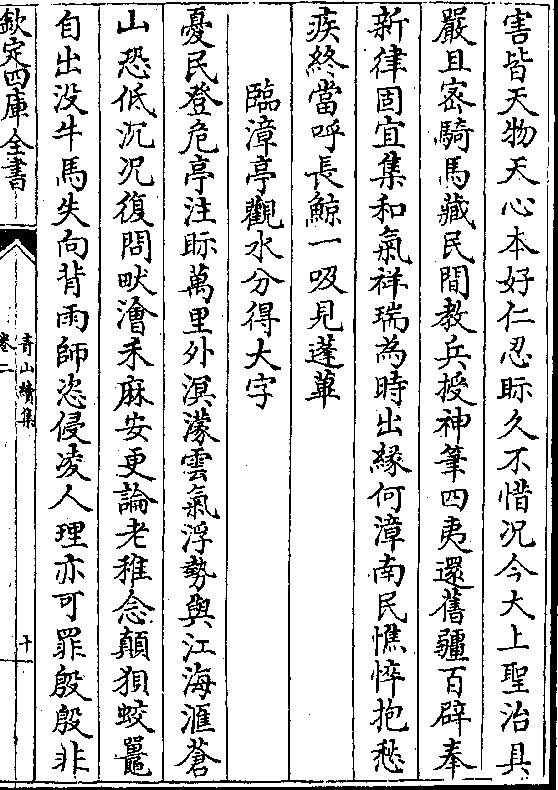 害皆天物天心本好仁忍眎久不惜况今大上聖治具
嚴且宻騎馬藏民間教兵授神筆四夷還舊疆百辟奉
新律固宜集和氣祥瑞為時出縁何漳南民憔悴抱愁
疾終當呼長鯨一吸見蓬蓽
臨漳亭觀水分得大字
憂民登危亭注眎萬里外溟濛雲氣浮勢與江海滙蒼
山恐低沉况復問畎澮禾麻安更論老稚念顛狽蛟鼉
自出没牛馬失向背雨師恣侵凌人理亦可罪殷殷非
欽定四庫全書
青山續集
卷二
十